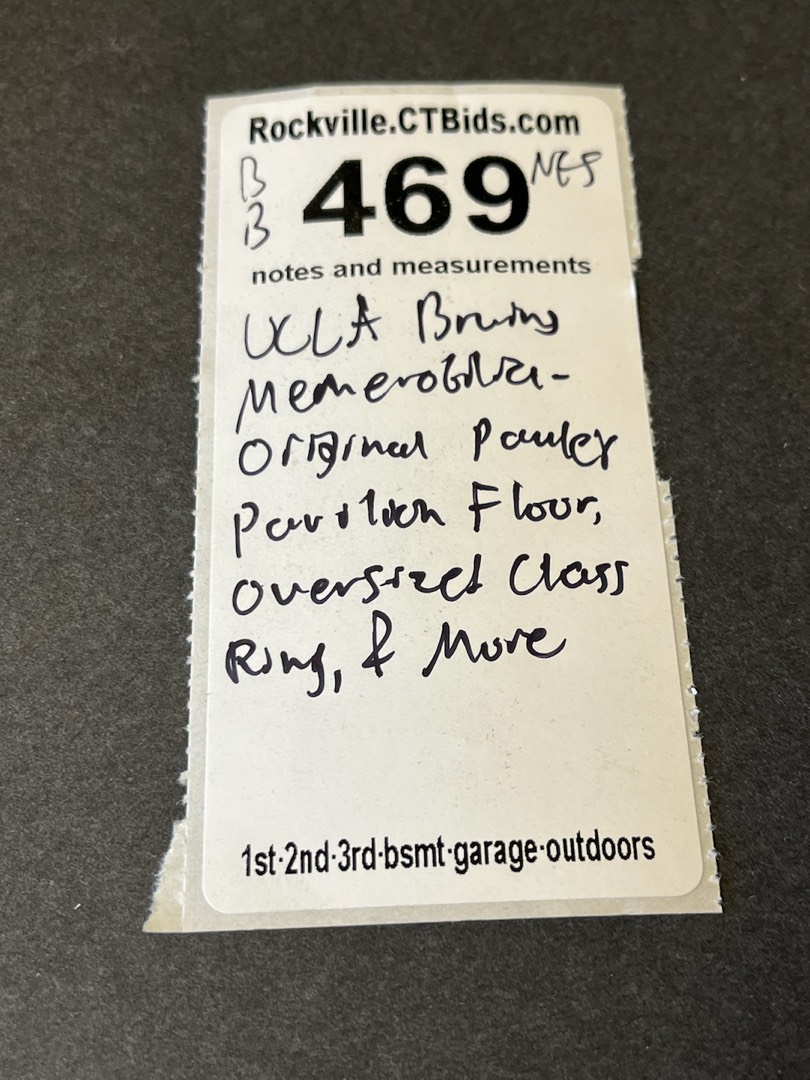 Rockville.CTBids.com
B
B
469
NES
notes and measurements
UCLA Bruins
Memerobilia-
Original Pauley
Pavilion Floor,
Oversized Class
Ring, & More
1st·2nd·3rd·bsmt·garage·outdoors